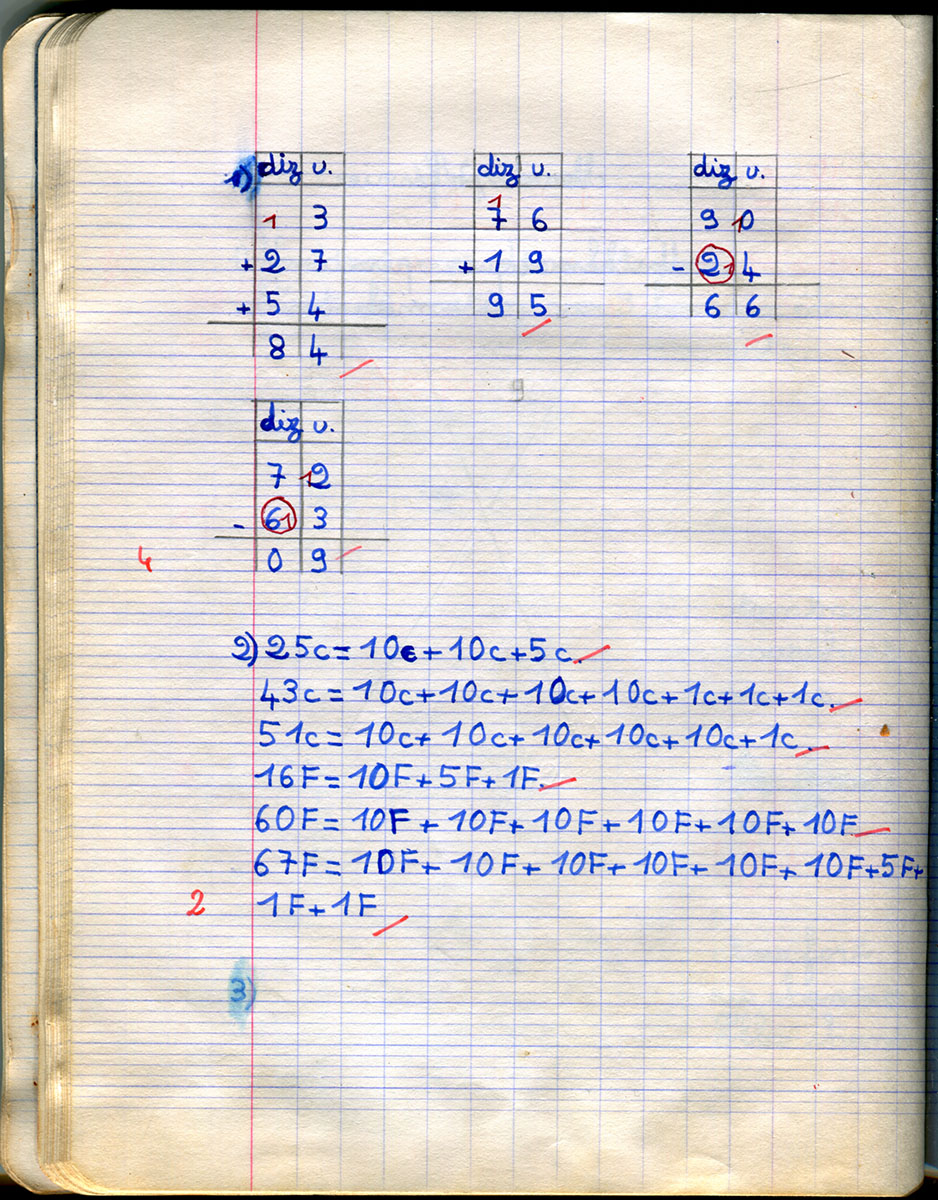 1) diz u. diz u. diz u.
1 3 1 7 6 9 10
+ 2 7 + 1 9 - 2 1 4
+ 5 4 9 5 6 6
8 4
diz u.
7 12
- 6 1 3
4 0 9
2) 25c = 10c + 10c + 5c.
43c = 10c + 10c + 10c + 10c + 1c + 1c + 1c.
51c = 10c + 10c + 10c + 10c + 10c + 1c.
16F = 10F + 5F + 1F.
60F = 10F + 10F + 10F + 10F + 10F + 10F
67F = 10F + 10F + 10F + 10F + 10F + 10F + 5F +
2 1F + 1F
3)